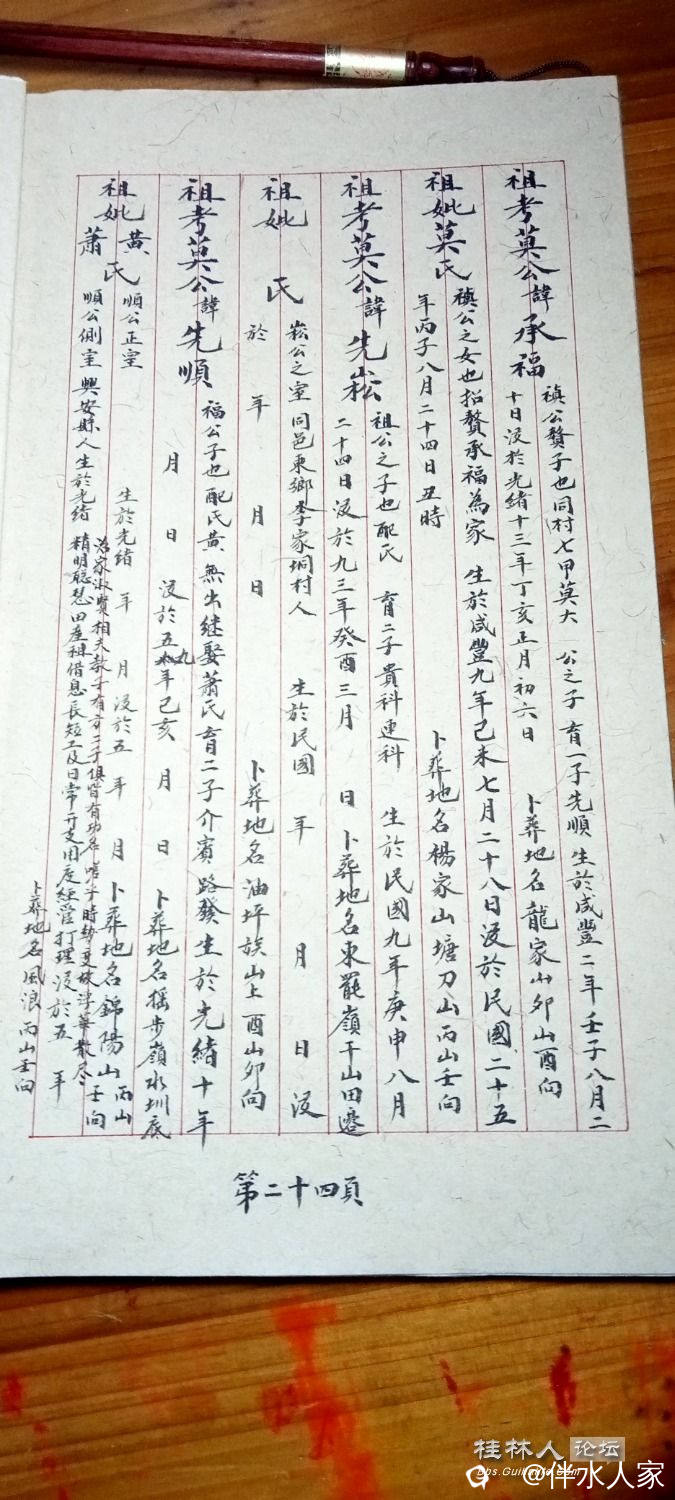 祖考莫公諱承福 禎公贅子也同村七甲莫大 公之子 育一子先順 生於咸豐二年壬子八月二
十日沒於光緒十三年丁亥正月初六日 卜葬地名龍家山卯山酉向
祖妣莫氏 禎公之女也招贅承福為家 生於咸豐九年己未七月二十八日沒於民國二十五
年丙子八月二十四日丑時 卜葬地名楊家山塘刀山丙山壬向
祖考莫公諱先崧 祖公之子也配氏 育二子貴科連科 生於民國九年庚申八月
二十四日沒於九三年癸酉三月 日 卜葬地名東罷嶺干山田邊
祖妣 氏 崧公之室同邑東鄉李家垌村人 生於民國 年 月 日沒
於 年 月 日 卜葬地名油坪族山上酉山卯向
祖考莫公諱先順 福公子也配氏黃無出继娶蕭氏育二子介賓路發生於光緒十年
月 日 沒於五九年己亥 月 日 卜葬地名搖步嶺水圳底
祖妣黃氏 順公正室 生於光緒 年 月沒於五 年 月 卜葬地名錦陽山丙山壬向
蕭氏 順公側室 興安縣人生於光緒 治家淑賢相夫教子有方二子俱皆有功名嗟乎時勢變故浮華散尽
精明聪慧田產租借息長短工及日常開支用度經營打理沒於五 年
卜葬地名風浪丙山壬向
第二十四頁
桂林人论坛
bbs.Guilinlife.com
@伴水人家